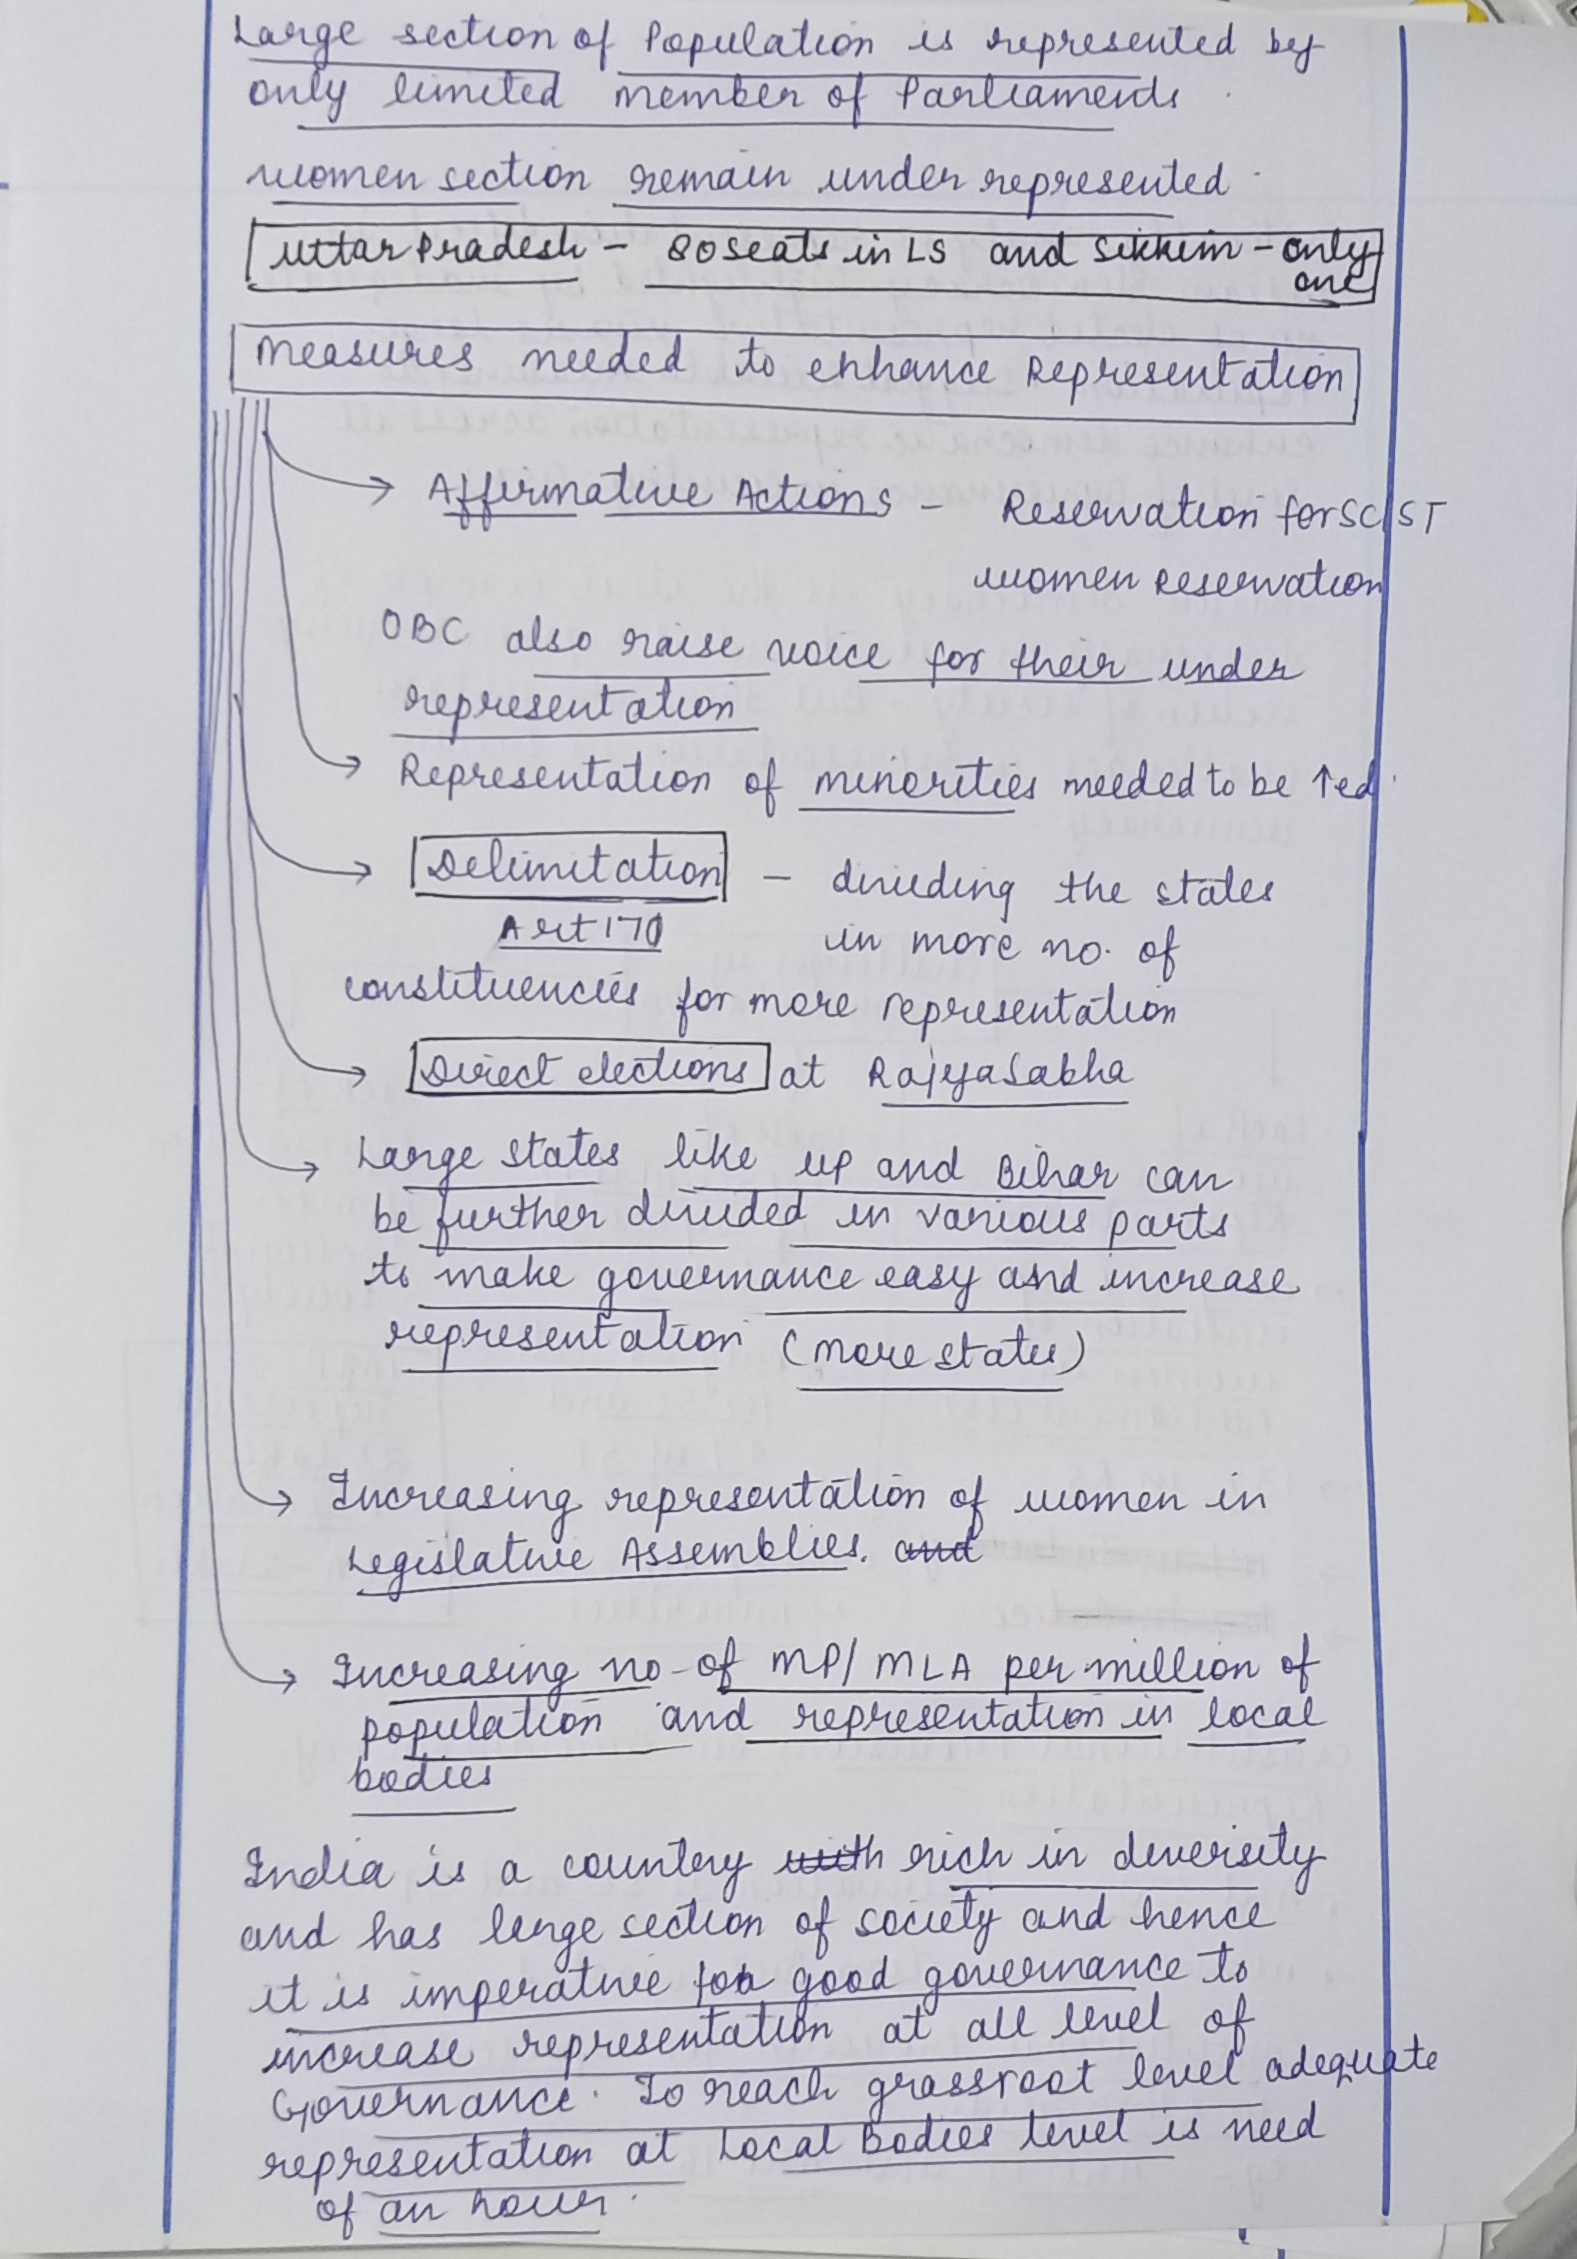 Large section of Population is represented by
only limited member of Parliaments
women section remain under represented
Uttar Pradesh - 80 seats in LS and Sikkim - only
one
Measures needed to enhance Representation
Affirmative Actions - Reservation for SC/ST
women Reservation
OBC also raise voice for their under
representation
Representation of minorities needed to be ↑ed.
Delimitation - dividing the states
Art 170 in more no. of
constituencies for more representation
Direct elections at Rajya Sabha
Large states like UP and Bihar can
be further divided in various parts
to make governance easy and increase
representation (more states)
Increasing representation of women in
Legislative Assemblies. and
Increasing no. of MP/MLA per million of
population and representation in local
bodies
India is a country with rich in diversity
and has lerge section of society and hence
it is imperative for good governance to
increase representation at all level of
Governance. To reach grassroot level adequate
representation at Local Bodies level is need
of an hour.